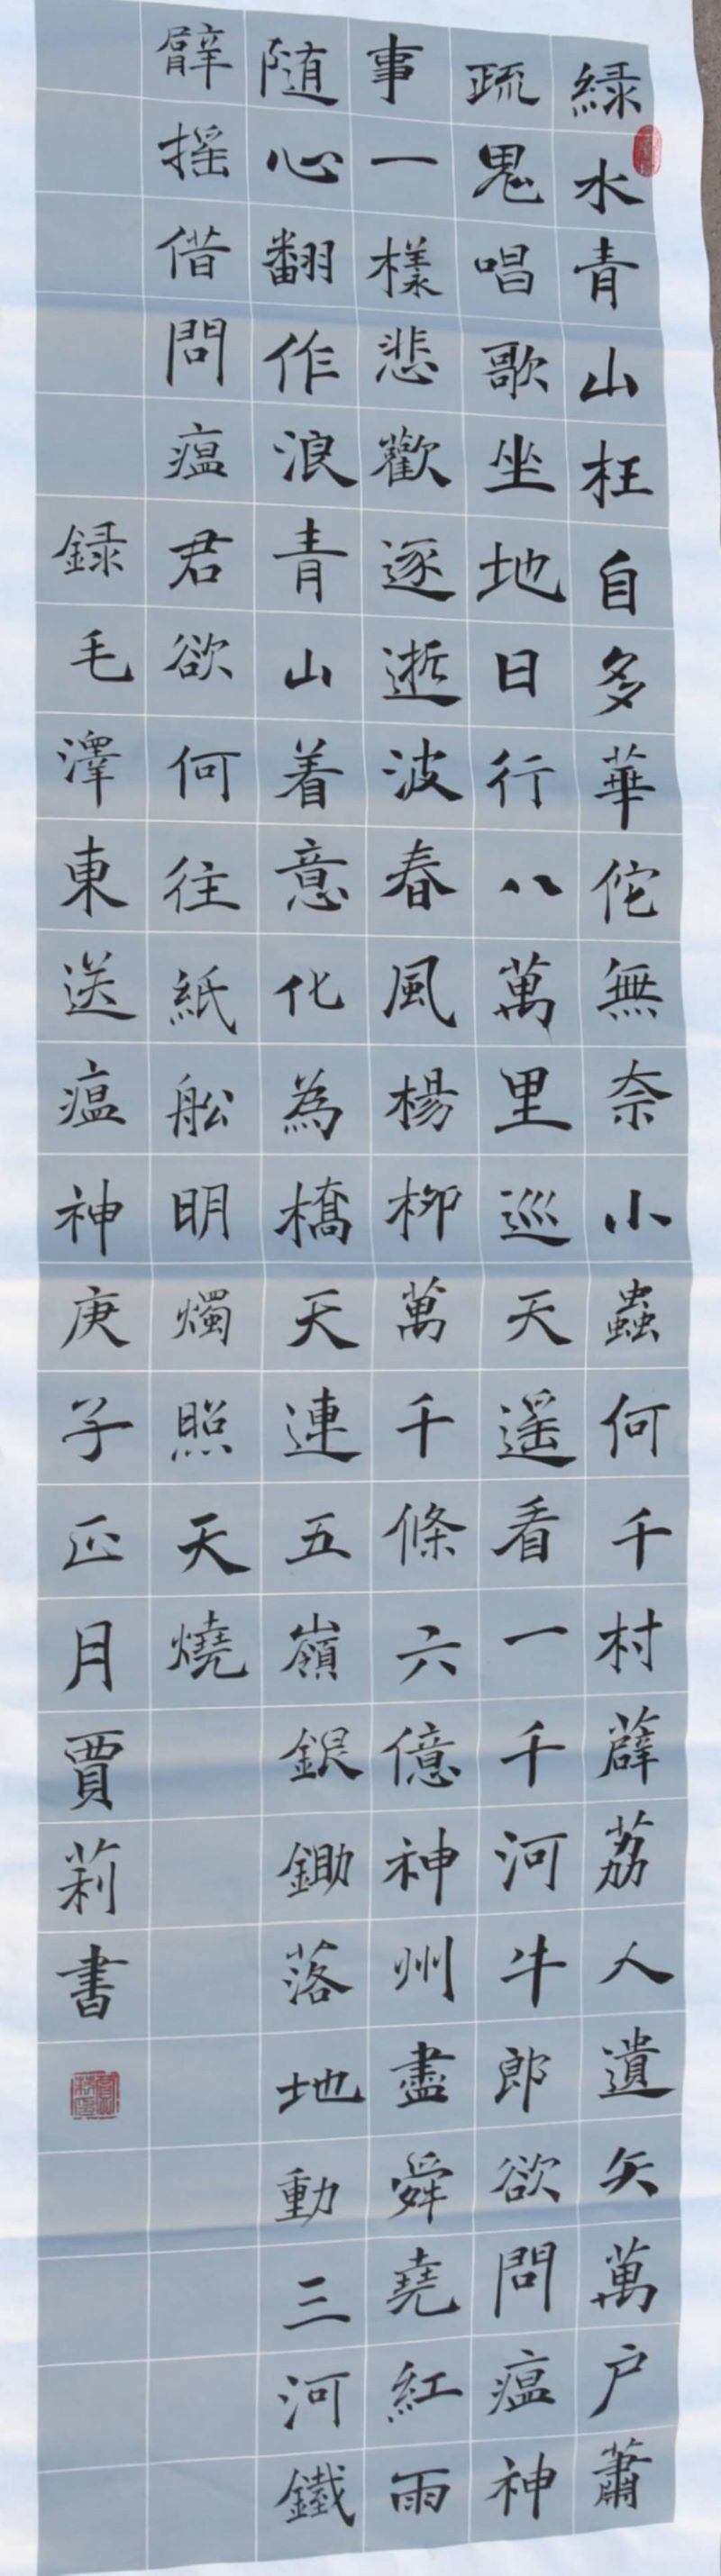 綠水青山枉自多華佗無奈小蟲何千村薜荔人遺矢萬户蕭
疏鬼唱歌坐地日行八萬里巡天遥看一千河牛郎欲問瘟神
事一樣悲歡逐逝波春風楊柳萬千條六億神州盡舜堯紅雨
随心翻作浪青山着意化為橋天連五嶺銀鋤落地動三河鐵
臂摇借問瘟君欲何往紙船明燭照天燒
録毛澤東送瘟神庚子正月賈莉書